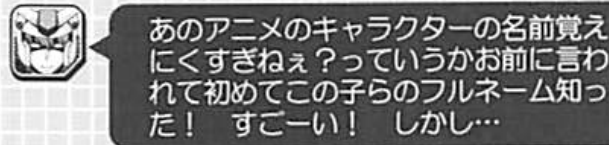 あのアニメのキャラクターの名前覚え
にくすぎねぇ？っていうかお前に言わ
れて初めてこの子らのフルネーム知っ
た！　すごーい！　しかし…